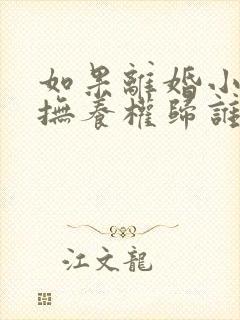 如果離婚小
撫養權歸誰
江文龍